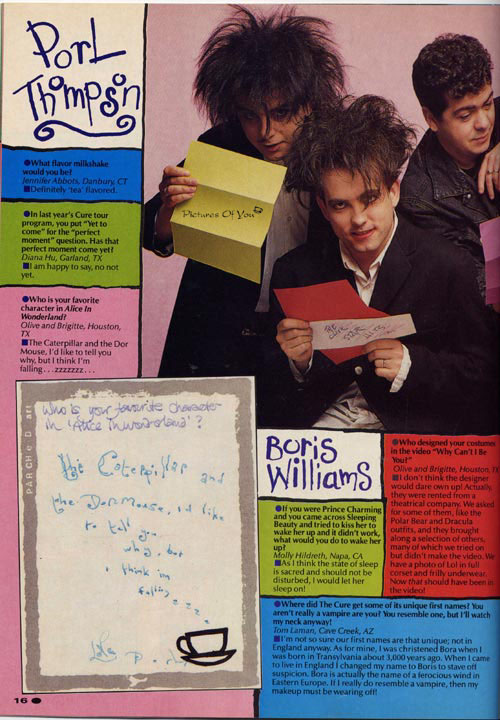 Porl
Thimpson
●What flavor milkshake
would you be?
Jennifer Abbots, Danbury, CT
■Definitely 'tea' flavored.
●In last year's Cure tour
program, you put "Yet to
come" for the "perfect
moment" question. Has that
perfect moment come yet?
Diana Hu, Garland, TX
■I am happy to say, no not
yet.
●Who is your favorite
character in Alice In
Wonderland?
Olive and Brigitte, Houston,
TX
■The Caterpillar and the Dor
Mouse, I'd like to tell you
why, but I think I'm
falling...zzzzzzz...
Pictures Of You
PARCHED art
Who is your favourite character
in 'Alice In wonderland'?
the Caterpillar and
the Dormouse, i'd like
to tell you
why, but
i think i'm
falling
zzzz
Boris
Williams
●If you were Prince Charming
and you came across Sleeping
Beauty and tried to kiss her to
wake her up and it didn't work,
what would you do to wake her
up?
Molly Hildreth, Napa, CA
■As I think the state of sleep
is sacred and should not be
disturbed, I would let her
sleep on!
●Who designed your costumes
in the video "Why Can't I Be
You?"
Olive and Brigitte, Houston, TX
■I don't think the designer
would dare own up! Actually,
they were rented from a
theatrical company. We asked
for some of them, like the
Polar Bear and Dracula
outfits, and they brought
along a selection of others,
many of which we tried on
but didn't make the video. We
have a photo of Lol in full
corset and frilly underwear.
Now that should have been in
the video!
●Where did The Cure get some of its unique first names? You
aren't really a vampire are you? You resemble one, but I'll watch
my neck anyway!
Tom Laman, Cave Creek, AZ
■I'm not so sure our first names are that unique; not in
England anyway. As for mine, I was christened Bora when I
was born in Transylvania about 3,000 years ago. When I came
to live in England I changed my name to Boris to stave off
suspicion. Bora is actually the name of a ferocious wind in
Eastern Europe. If I really do resemble a vampire, then my
makeup must be wearing off!
16 ●